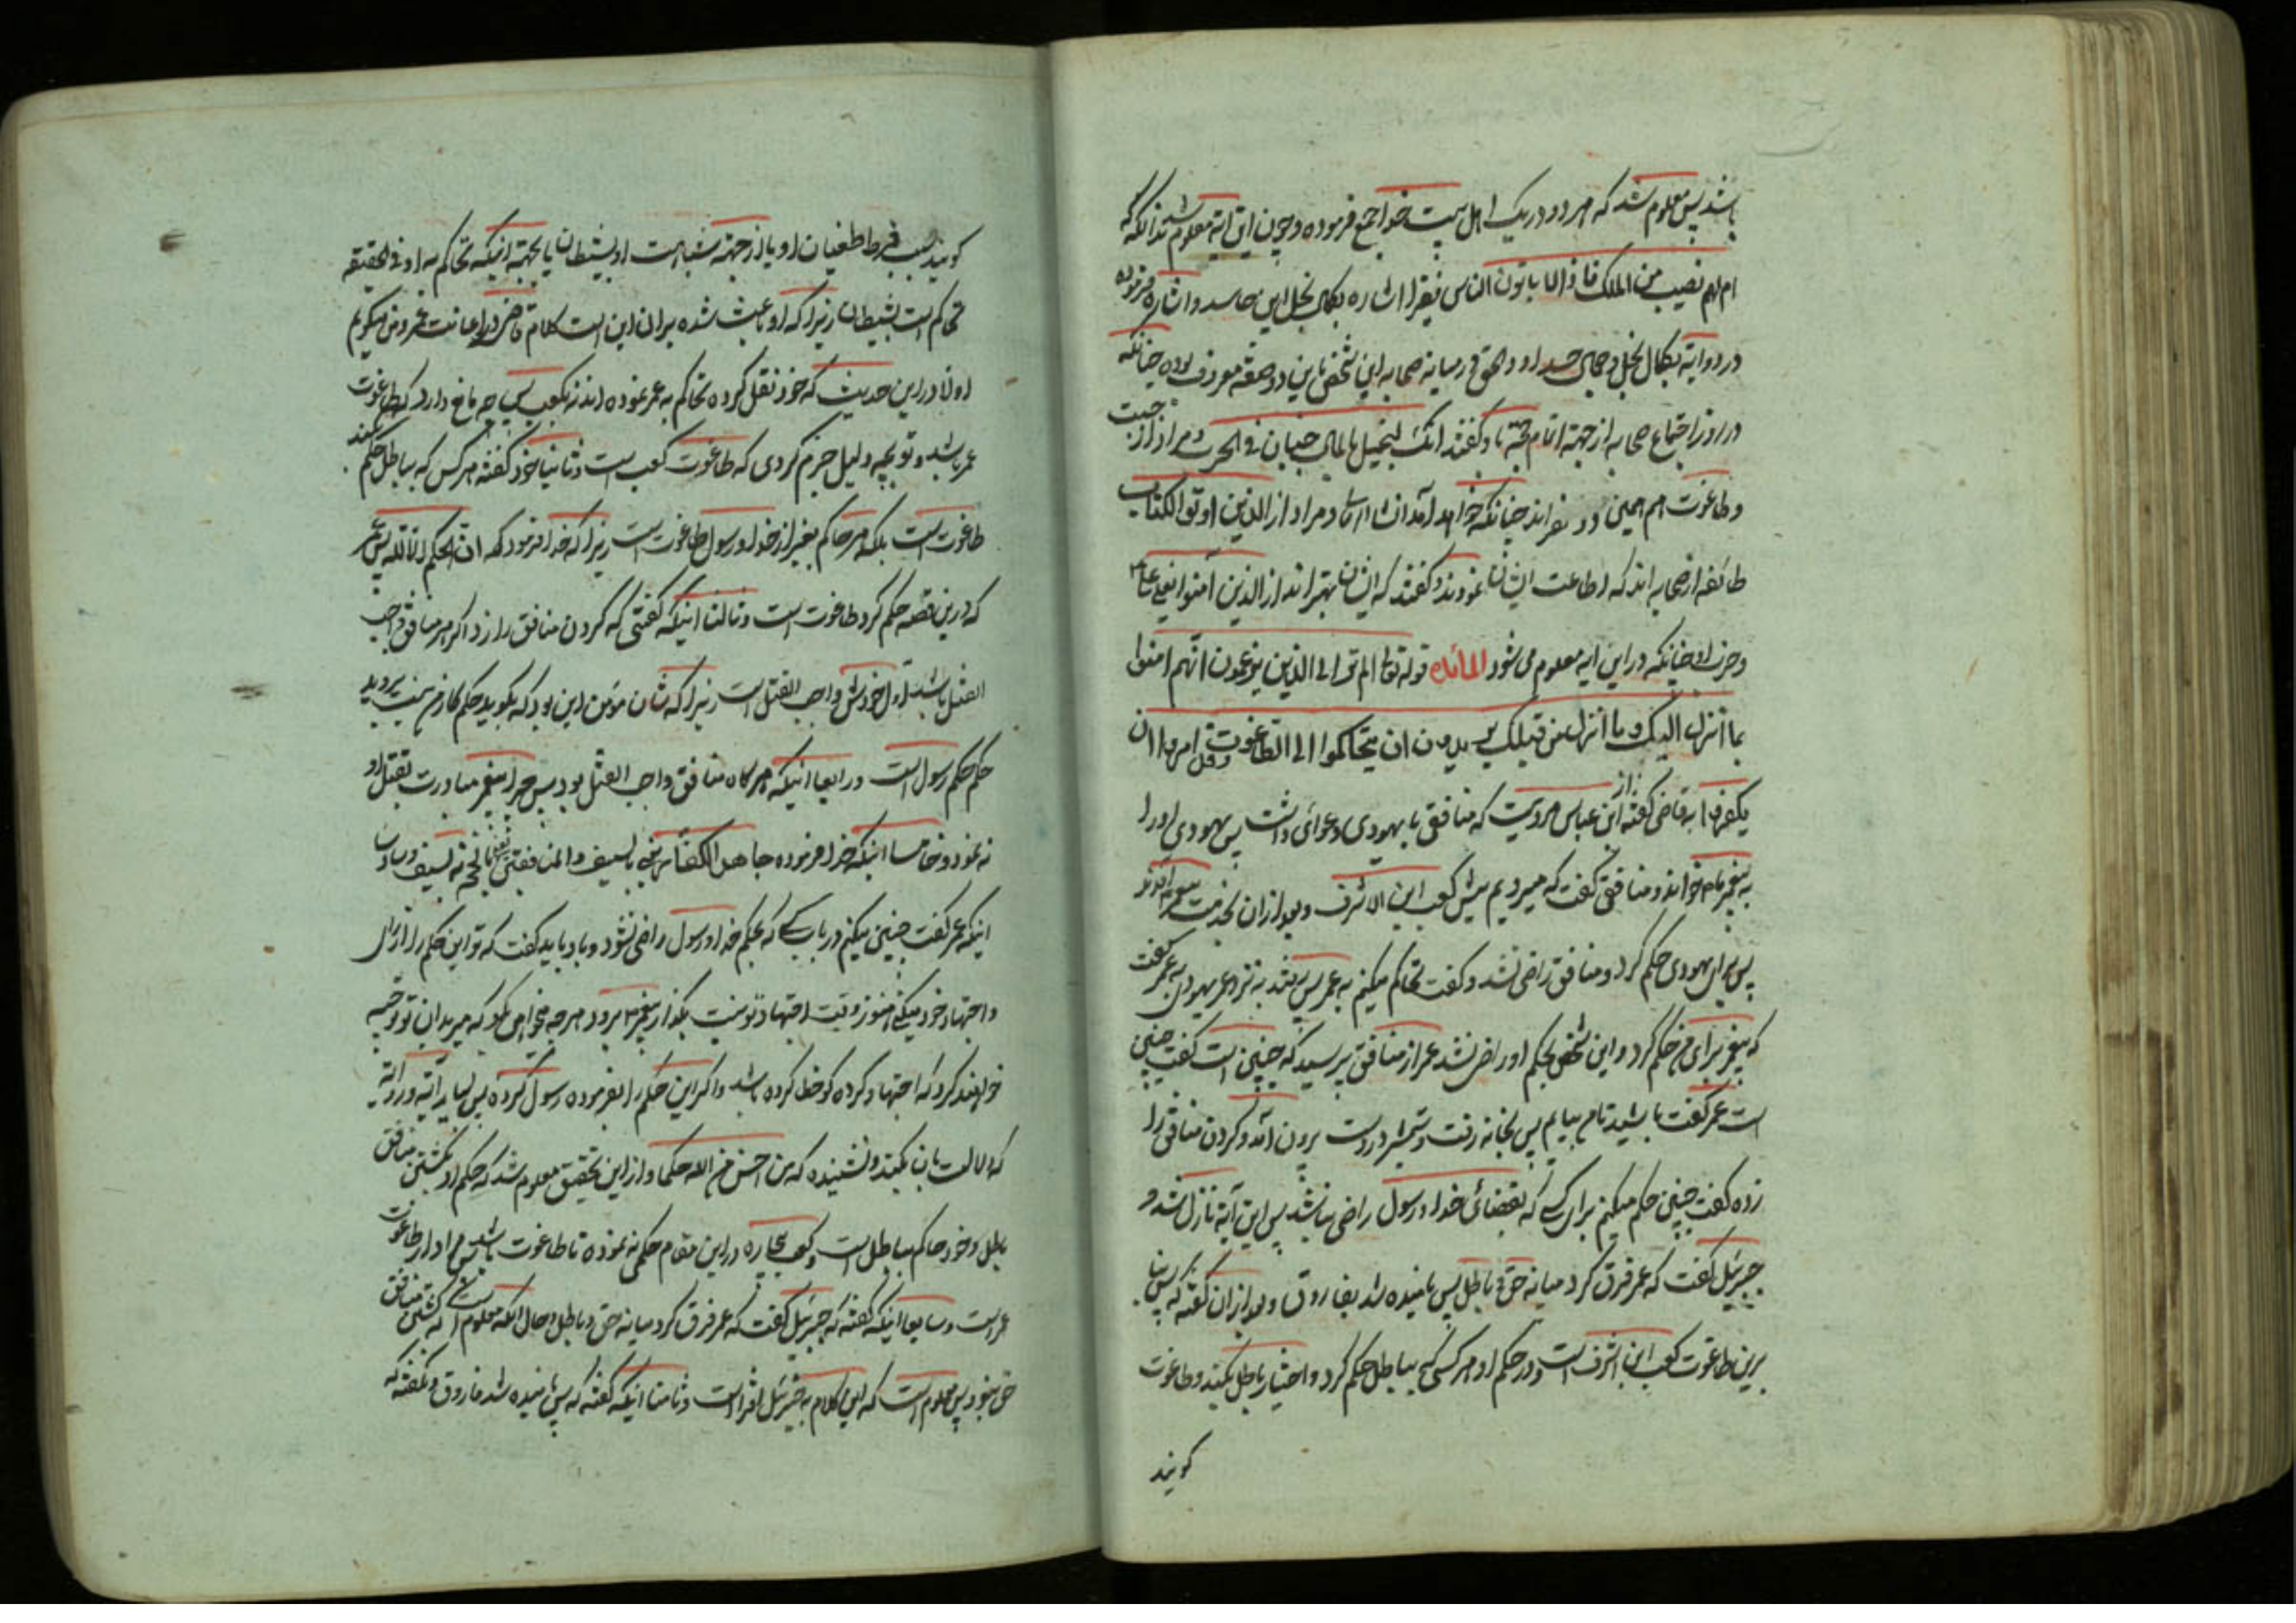 باشد پس معلوم شد که هر دو در یک اهل بیت خود جمع فرموده و چون این آیه معلوم شد بدانکه
ام لهم نصیب من الملک فاذا لا یاتون الناس نقیرا اشاره بکمال بخل این حاسد و اشاره فرموده
در دو آیه بکمال بخل و کمال حسد او و الحق در میانه صحابه این شخص باین دو صفة معروف بوده چنانکه
در روز اجتماع صحابه از جهة اتمام حجّة باو گفتند انک لبخیل بالمال جبان فی الحرب و مراد از جبت
و طاغوت هم همین دو نفراند چنانکه خواهد آمد انشاء الله و مراد از الذین اوتوا الکتاب
طائفه از صحابه اند که اطاعت ایشان نمودند و گفتند که ایشان بهتراند از الذین آمنوا یعنی علی ع
و حزب او چنانکه در این آیه معلوم می شود المائة قوله تع الم تر الی الذین یزعمون انّهم امنوا
بما انزل الیک و ما انزل من قبلک یریدون ان یتحاکموا الی الطاغوت و قد امروا ان
یکفروا به قاضی گفته از ابن عباس مرویست که منافقی با یهودی دعوائی داشت پس یهودی او را
به پیغمبر ص خواند و منافق گفت که میرویم پیش کعب ابن الاشرف و بعد از آن بخدمت پیغمبر آمدند
پس برای یهودی حکم کرد و منافق راضی نشد و گفت تحاکم میکنم به عمر پس رفتند به نزد عمر یهودی به عمر گفت
که پیغمبر برای من حکم کرد و این شخص بحکم او راضی نشد عمر از منافق پرسید که چنین است گفت چنین
است عمر گفت باشید تا من بیایم پس بخانه رفت و شمشیر در دست برون آمد و گردن منافق را
زده گفت چنین حکم میکنم برای کسی که بقضائی خدا و رسول راضی نباشد پس این آیه نازل شد و
جبرئیل گفت که عمر فرق کرد میانه حق و باطل پس نامیده شد بفاروق و بعد از آن گفته که پس بنا
برین طاغوت کعب ابن اشرف است و در حکم او هر کسی که بباطل حکم کرد و اختیار باطل بکند و طاغوت
گویند
گویند بسبب فرط طغیان او یا از جهة مشابهت او بشیطان یا بجهة اینکه تحاکم به او فی الحقیقه
تحاکم است بشیطان زیرا که او باعث شده بر آن این است کلام قاضی در اعانت عمر و من میگویم
اولا در این حدیث که خود نقل کرده تحاکم به عمر نموده اند نه بکعب پس چه مانع دارد که طاغوت
عمر باشد و تو بچه دلیل جزم کردی که طاغوت کعب است و ثانیا خود گفته هر کس که بباطل حکم کند
طاغوت است بلکه هر حاکم بغیر از خدا و رسول طاغوت است زیرا که خدا فرمود که ان الحکم الا لله پس عمر
که درین قصه حکم کرد طاغوت است و ثالثا اینکه گفتی که گردن منافق را زد اگر هر منافق واجب
القتل باشد اول خودش واجب القتل است زیرا که شان مؤمن این بود که بگوید حکم کار من نیست بروید
حکم حکم رسول است و رابعا اینکه هر گاه منافق واجب القتل بود پس چرا پیغمبر مبادرت بقتل او
نه نمود و خامسا اینکه خدا فرموده جاهد الکفار یعنی بالسیف و المنافقین یعنی بالحجّة نه بسیف و سادسا
اینکه عمر گفت چنین میکنم در باب کسی که بحکم خدا و رسول راضی نشود و باو باید گفت که تو این حکم را از رای
و اجتهاد خود میکنی هنوز وقت اجتهاد تو نیست بگذار پیغمبر ص برود هر چه میخواهی بکن که مریدان تو توجیه
خواهند کرد که اجتهاد کرده کو خطا کرده باشد و اگر این حکم را بفرموده رسول کرده پس بیاید آیه و روایه
که دلالت بآن بکند و نشنیده که من احسن من الله حکما و از این تحقیق معلوم شد که حکم او بکشتن منافق
باطل و خود حاکم بباطل است و کعب بیچاره در این مقام حکمی نه نموده تا طاغوت باشد پس مراد از طاغوت
عمر است و سابعا اینکه گفته که جبرئیل گفت که عمر فرق کرد میانه حق و باطل و حال آنکه معلوم است که کشتن منافق
حق نبود پس معلوم است که این کلام به جبرئیل افتراست و ثامنا اینکه گفته که پس نامیده شد فاروق و نگفته که